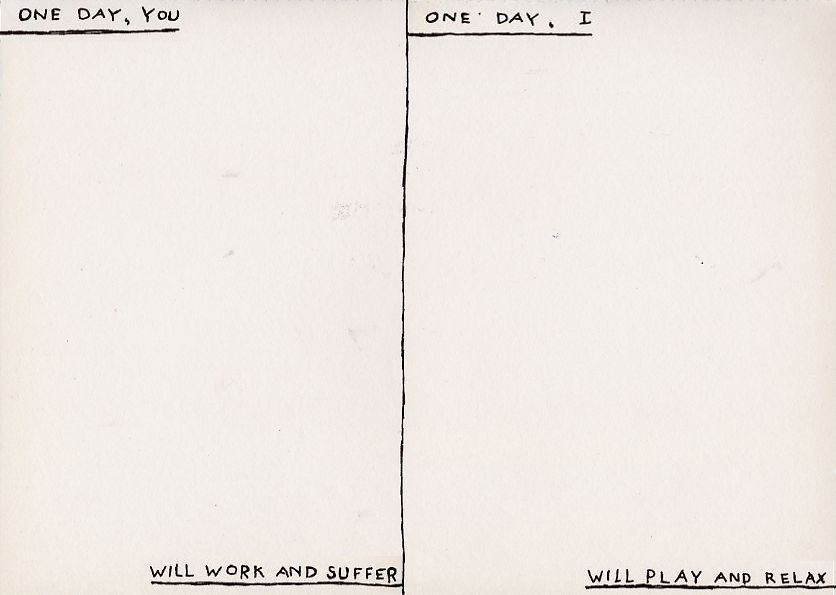 ONE DAY, YOU
WILL WORK AND SUFFER
ONE DAY. I
WILL PLAY AND RELAX